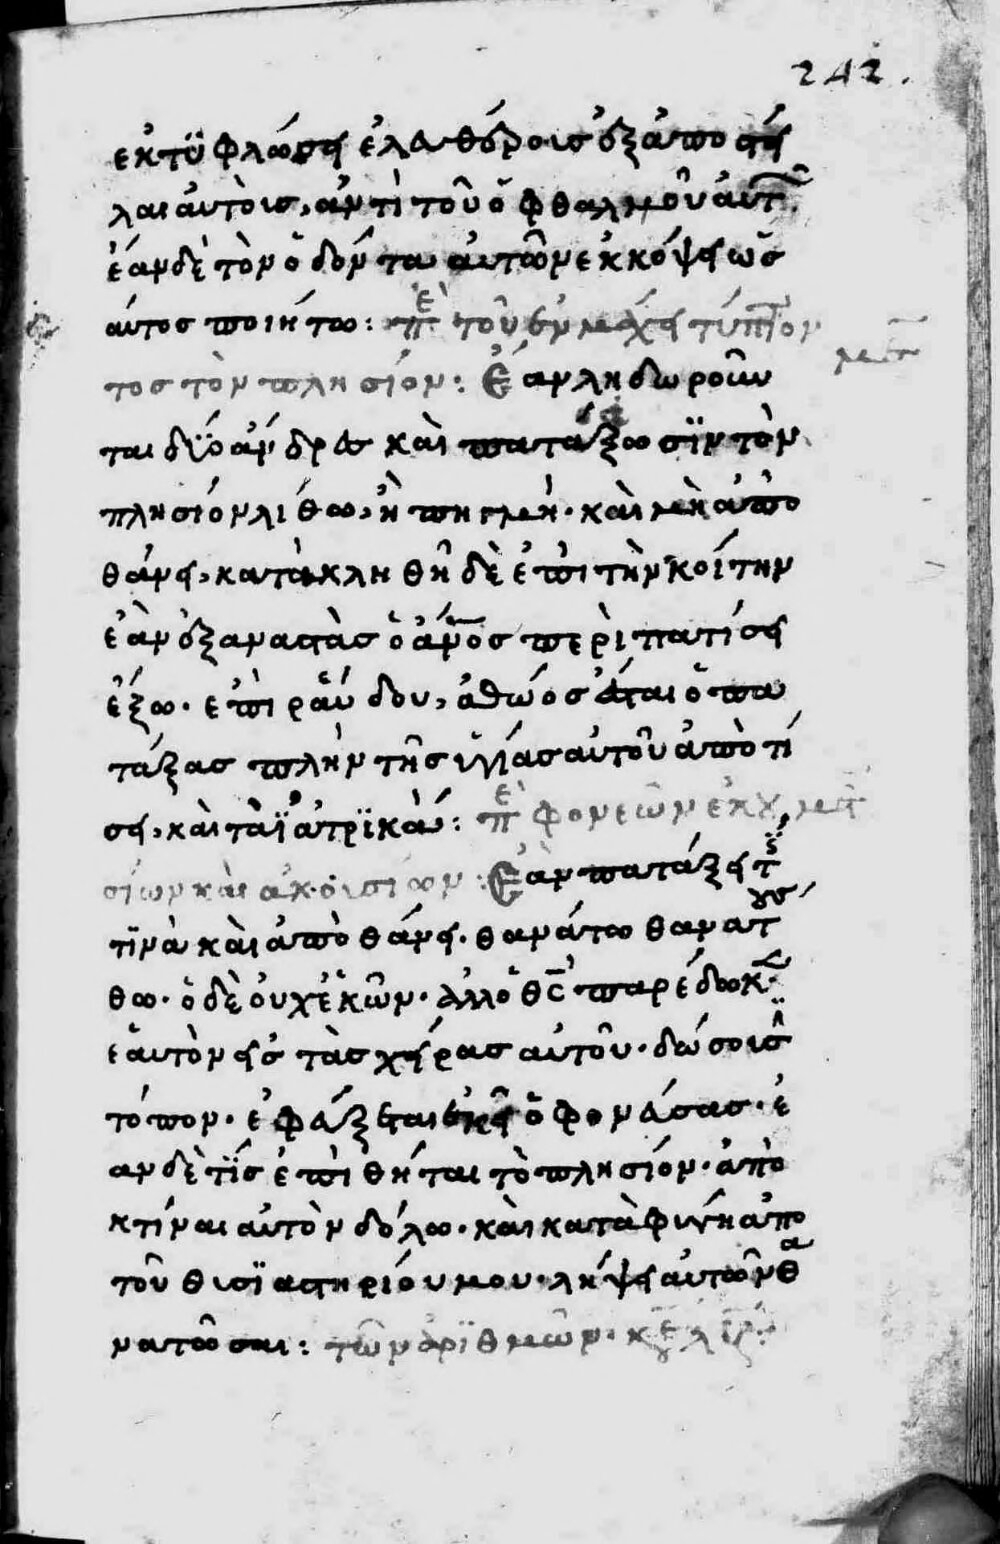 242.
ἐκτϋφλώσῃ ἐλευθέροις ἐξαποστεί
λαι ἀυτοὺς, ἀντὶ τοῦ ὀφθαλμοῦ ἀυτ
ἐάν δὲ τὸν ὀδόντα αυτῶν ἐκκόψει ὡσ
άυτος ποιήτω: περὶ τοῦ ἐν μάχῃ τύπτον
τος τὸν πλησίον: Ἐάν ληδωροῦν
ται δύο άνδρες καὶ πατάξωσϊν τὸν
πλησίον λίθω, ἢ πηγμή. καὶ μὴ ἀπο
θάνῃ, κατακληθῆ δὲ ἐπι τὴν κοίτην
ἐὰν ἐξαναστὰς ὁ ἄνος περιπατίσῃ
ἔξω. ἐπὶ ράυδου, ἀθώος έσται ὁ πα
τάξας πλὴν τῆς ὑγίας αὐτοῦ ἀποτί
σῃ, καὶ τὰ ϊατρϊκὰ: περὶ φονεῶν ἑκου
σίων καὶ ακουσίων: Ἐὰν πατάξῃ τίς
τϊνὰ καὶ ἀποθάνῃ. θανάτω θανατούσ
θω. ὁ δὲ ὀυχ ἑκὼν. ἀλλ ὁ θς παρέδωκεν
ἑαυτὸν εἰς τὰς χεῖρας αὐτοῦ. δώσοισϊ
τόπον. ἐ φεύξεται ἐκεῖ ὁ φονεύσας. ἐ
αν δὲ τϊς ἐπιθήται τὸ πλησίον. ἀπο
κτίναι αὐτὸν δόλω. καὶ καταφύγη ἀπο
τοῦ θυσϊαστηρίου μου. λήψῃ αυτὸν θα
νατῶσαι: τῶν ἀρϊθμῶν.